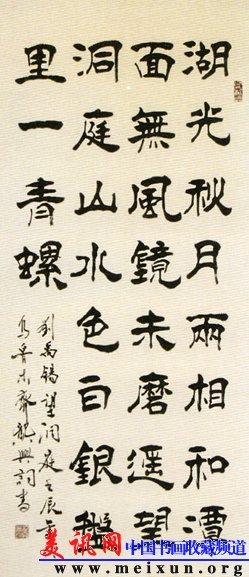 湖光秋月兩相和潭
面無風鏡未磨遥望
洞庭山水色白銀盤
里一青螺
刘禹锡望洞庭壬辰
乌鲁木齊龍興詞書
美讯网 中国书画收藏频道
www.meixun.org